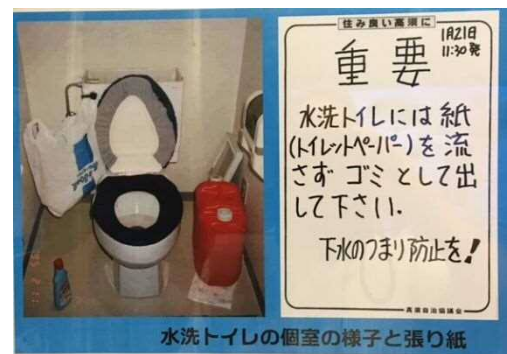 住み良い高須に
1月21日
11:30発
重要
水洗トイレには紙
(トイレットペーパー)を流
さずゴミとして出
して下さい.
下水のつまり防止を!
高須自治協議会
水洗トイレの個室の様子と張り紙